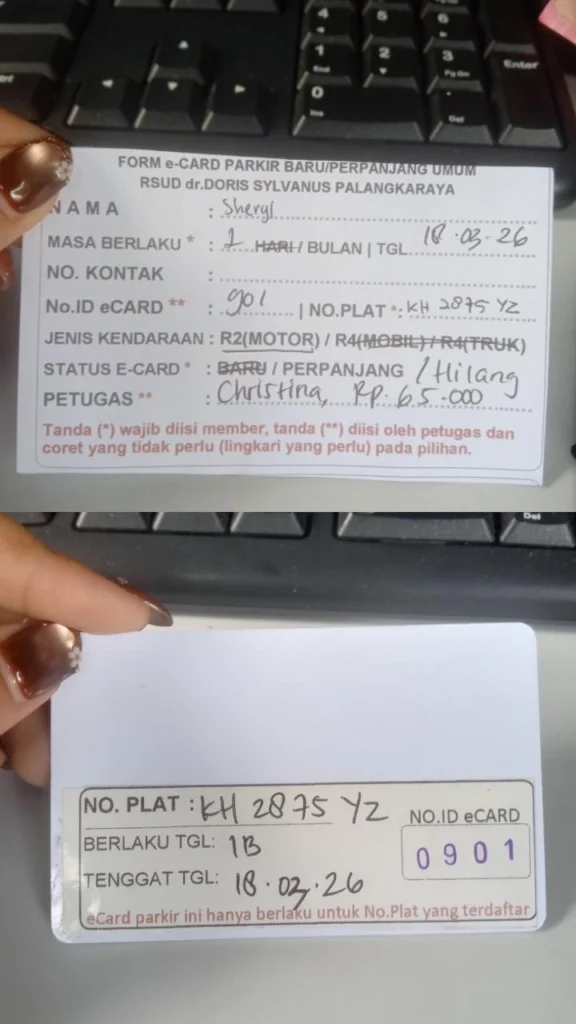 4 5 6
1 End 2 3 Pg Dn Enter
0 Ins Del
FORM e-CARD PARKIR BARU/PERPANJANG UMUM
RSUD dr.DORIS SYLVANUS PALANGKARAYA
NAMA : Sheryl
MASA BERLAKU * : 1 HARI / BULAN | TGL. 18-03-26
NO. KONTAK :
No.ID eCARD ** : 901 | NO.PLAT *: KH 2875 YZ
JENIS KENDARAAN : R2(MOTOR) / R4(MOBIL) / R4(TRUK)
STATUS E-CARD * : BARU / PERPANJANG / Hilang
PETUGAS ** : Christina, Rp. 65.000
Tanda (*) wajib diisi member, tanda (**) diisi oleh petugas dan
coret yang tidak perlu (lingkari yang perlu) pada pilihan.
Del
NO. PLAT : KH 2875 YZ
NO.ID eCARD
BERLAKU TGL: 1B
0901
TENGGAT TGL: 18.03.26
eCard parkir ini hanya berlaku untuk No.Plat yang terdaftar